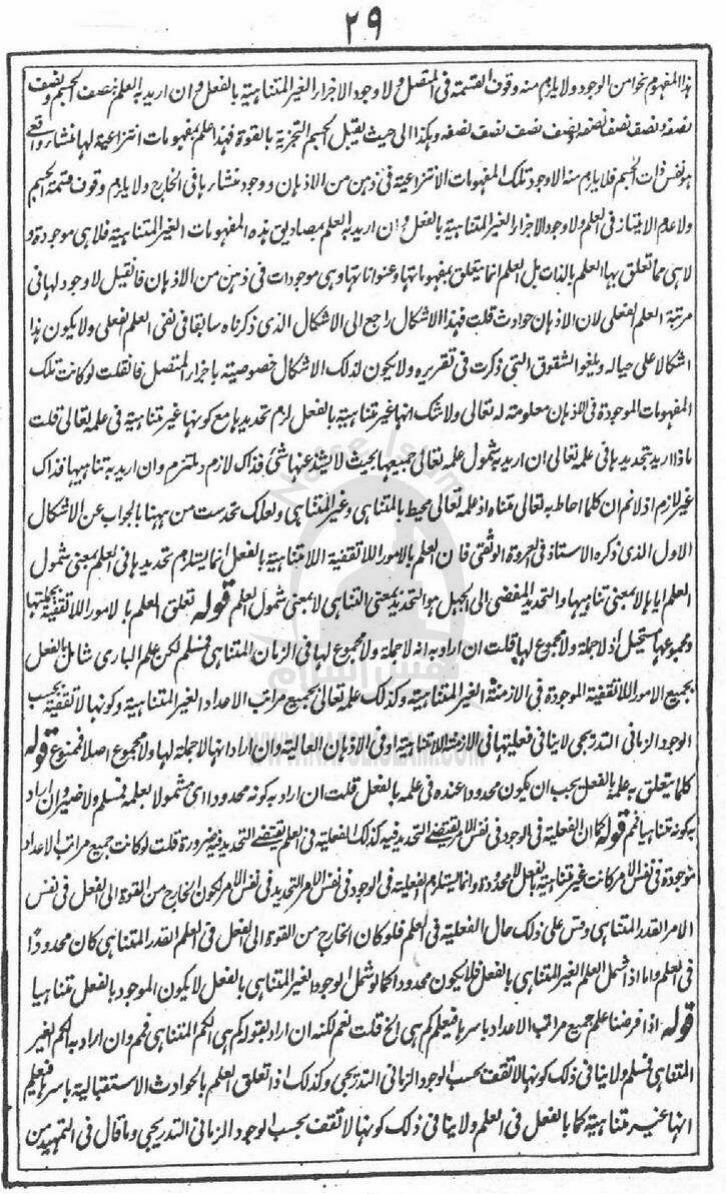 ٢٩
هذا المفهوم نحوا من الوجود ولا يلزم منه وقوف القسمة فى المتصل ولا وجود الاجزاء الغير المتناهية بالفعل وان اريد به العلم بنصف الجسم ونصف
نصفه ونصف نصف نصفه ونصف نصف نصف نصفه وهكذا الى حيث يقبل الجسم التجزية بالقوة فهذا علم بمفهومات انتزاعية لها منشاء واقعى
هو نفس ذات الجسم فلا يلزم منه الا وجود تلك المفهومات الانتزاعية فى ذهن من الاذهان ووجود منشاء ها فى الخارج ولا يلزم وقوف قسمة الجسم
ولا عدم الامتياز فى العلم ولا وجود الاجزاء الغير المتناهية بالفعل وان اريد به العلم بمصاديق هذه المفهومات الغير المتناهية فلا هى موجودة و
لا هى مما تعلق بها العلم بالذات بل العلم انما يتعلق بمفهوماتها وعنواناتها وهى موجودات فى ذهن من الاذهان فانقيل لا وجود لها فى
مرتبة العلم الفعلى لان الاذهان حوادث قلت فهذا الاشكال راجع الى الاشكال الذى ذكرناه سابقا فى نفى العلم الفعلى ولا يكون هذا
اشكالا على حياله ويلغو الشقوق التى ذكرت فى تقريره ولا يكون لذلك الاشكال خصوصية باجزاء المتصل فانقلت لو كانت تلك
المفهومات الموجودة فى الاذهان معلومة له تعالى ولا شك انها غير متناهية بالفعل لزم تحديدها مع كونها غير متناهية فى علمه تعالى قلت
ماذا اريد بتحديدها فى علمه تعالى ان اريد به شمول علمه تعالى جميعها بحيث لا يشذ عنها شئ فذاك لازم وملتزم وان اريد به تناهيها فذاك
غير لازم اذ لانم ان كلما احاط به تعالى متناه اذ علمه تعالى محيط بالمتناهى وغير المتناهى ولعلك تحدست من ههنا بالجواب عن الاشكال
الاول الذى ذكره الاستاذ فى العروة الوثقى فان العلم بالامور اللاتقفية اللامتناهية بالفعل انما يستلزم تحديدها فى العلم بمعنى شمول
العلم اياها لا بمعنى تناهيها والتحديد المفضى الى الجهل هو التحديد بمعنى التناهى لا بمعنى شمول العلم قوله تعلق العلم بالامور اللاتقفية بجملتها
ومجموعها مستحيل اذ لا جملة ولا مجموع لها قلت ان اراد به انه لا جملة ولا مجموع لها فى الزمان المتناهى فمسلم لكن علم البارى شامل بالفعل
بجميع الامور اللاتقفية الموجودة فى الازمنة الغير المتناهية وكذلك علمه تعالى بجميع مراتب الاعداد الغير المتناهية وكونها لاتقفية بحسب
الوجود الزمانى التدريجى لا ينافى فعليتها فى الازمنة اللامتناهية او فى الاذهان العالية وان اراد انها لا جملة لها ولا مجموع اصلا فممنوع قوله
كلما يتعلق به علمه بالفعل يجب ان يكون محدودا عنده فى علمه بالفعل قلت ان اراد به كونه محدودا اى مشمولا بعلمه فمسلم ولا ضير وان اراد
به كونه متناهيا فمم قوله كما ان الفعلية فى الوجود فى نفس الامر يقتضى التحديد فيه كذلك الفعلية فى العلم يقتضى التحديد فيه ضرورة قلت لو كانت جميع مراتب الاعداد
موجودة فى نفس الامر كانت غير متناهية بالفعل لا محدودة وانما يستلزم الفعلية فى الوجود فى نفس الامر التحديد فى نفس الامر لكون الخارج من القوة الى الفعل فى نفس
الامر القدر المتناهى وقس على ذلك حال الفعلية فى العلم فلو كان الخارج من القوة الى الفعل فى العلم القدر المتناهى كان محدودا
فى العلم واما اذا شمل العلم الغير المتناهى بالفعل فلا يكون محدودا كما لو شمل الوجود الغير المتناهى بالفعل لا يكون الموجود بالفعل متناهيا
قوله اذا فرضنا علم جميع مراتب الاعداد باسرها فيعلم كم هى الخ قلت نعم لكنه ان اراد بقوله كم هى الكم المتناهى فمم وان اراد به الكم الغير
المتناهى فمسلم ولا ينافى ذلك كونها لاتقف بحسب الوجود الزمانى التدريجى وكذلك اذا تعلق العلم بالحوادث الاستقبالية باسرها فيعلم
انها غير متناهية كما بالفعل فى العلم ولا ينافى ذلك كونها لاتقف بحسب الوجود الزمانى التدريجى وما قال فى التمهيد من
نفس اسلام
Nafse Islam
WWW.NAFSEISLAM.COM